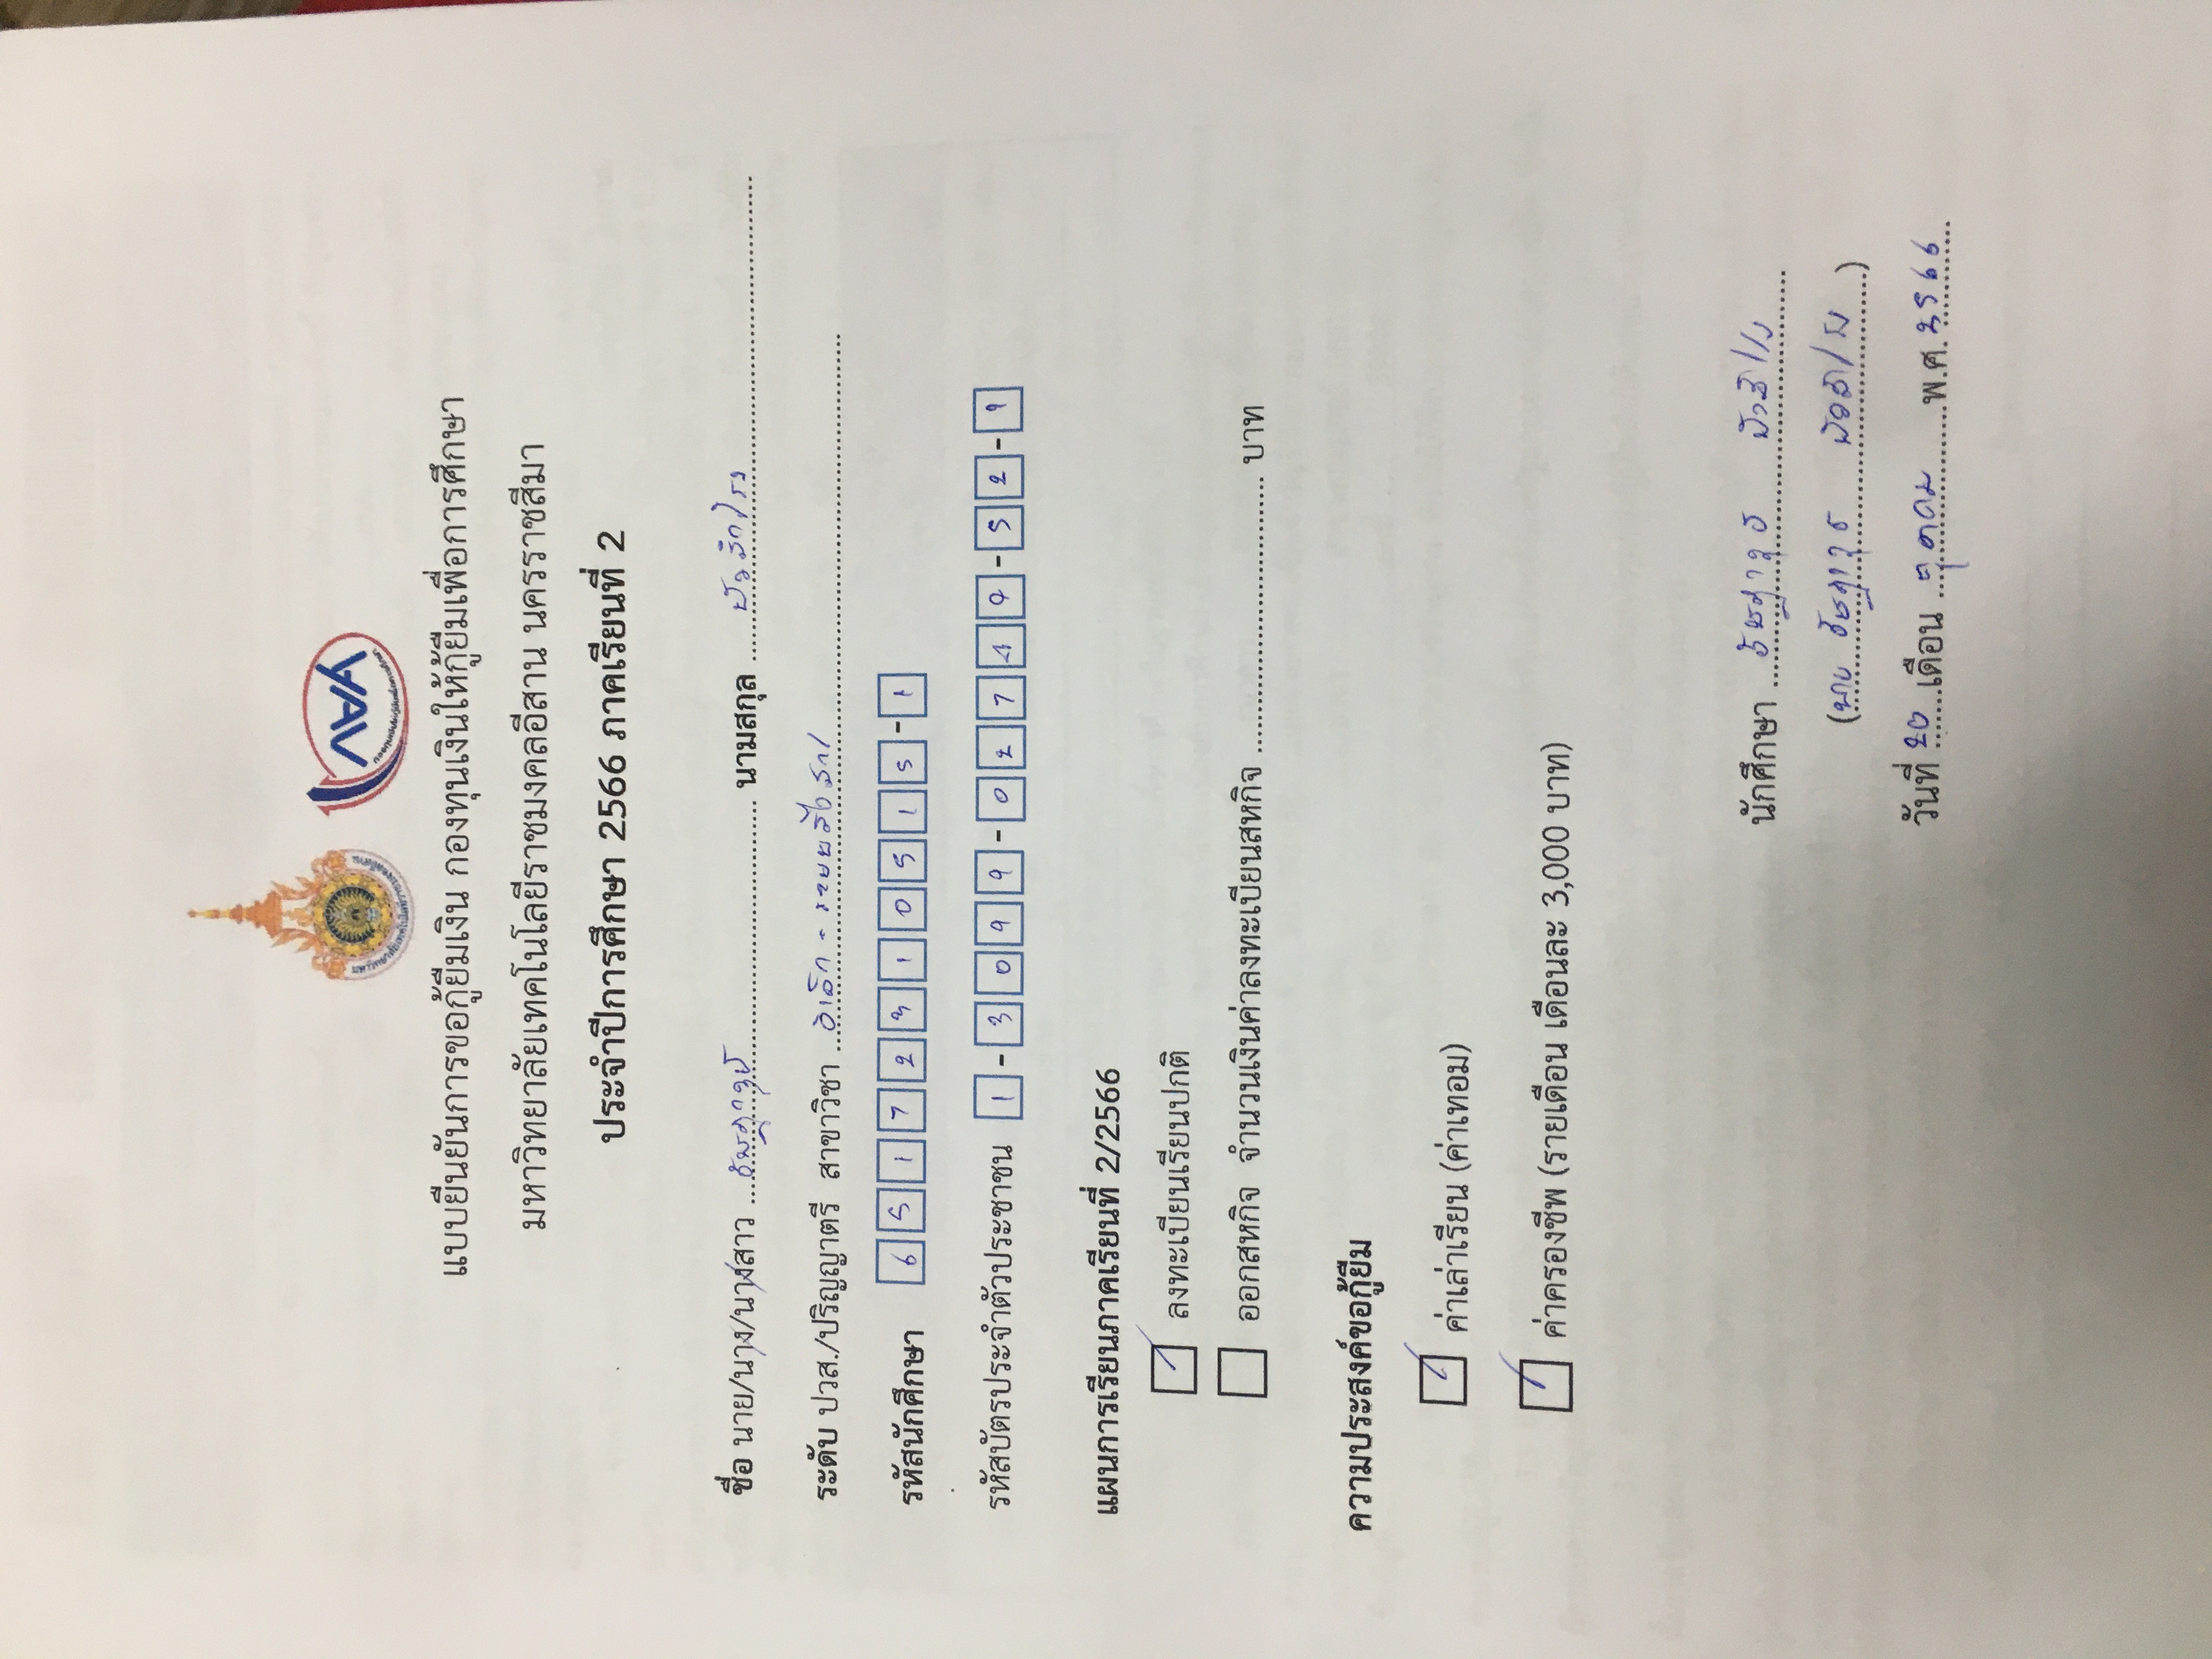 มหาวิทยาลัยเทคโนโลยีราชมงคลอีสาน
กยศ
กองทุนเงินให้กู้ยืมเพื่อการศึกษา
แบบยืนยันการขอกู้ยืมเงิน กองทุนเงินให้กู้ยืมเพื่อการศึกษา
มหาวิทยาลัยเทคโนโลยีราชมงคลอีสาน นครราชสีมา
ประจำปีการศึกษา 2566 ภาคเรียนที่ 2
ชื่อ นาย/นาง/นางสาว นามสกุล
ระดับ ปวส./ปริญญาตรี สาขาวิชา
รหัสนักศึกษา 65172310515-1
รหัสบัตรประจำตัวประชาชน 1-3099-02749-52-1
แผนการเรียนภาคเรียนที่ 2/2566
ลงทะเบียนเรียนปกติ
ออกสหกิจ จำนวนเงินค่าลงทะเบียนสหกิจ ............ บาท
ความประสงค์ขอกู้ยืม
ค่าเล่าเรียน (ค่าเทอม)
ค่าครองชีพ (รายเดือน เดือนละ 3,000 บาท)
นักศึกษา
(นาย )
วันที่ 20 เดือน ตุลาคม พ.ศ. 2566